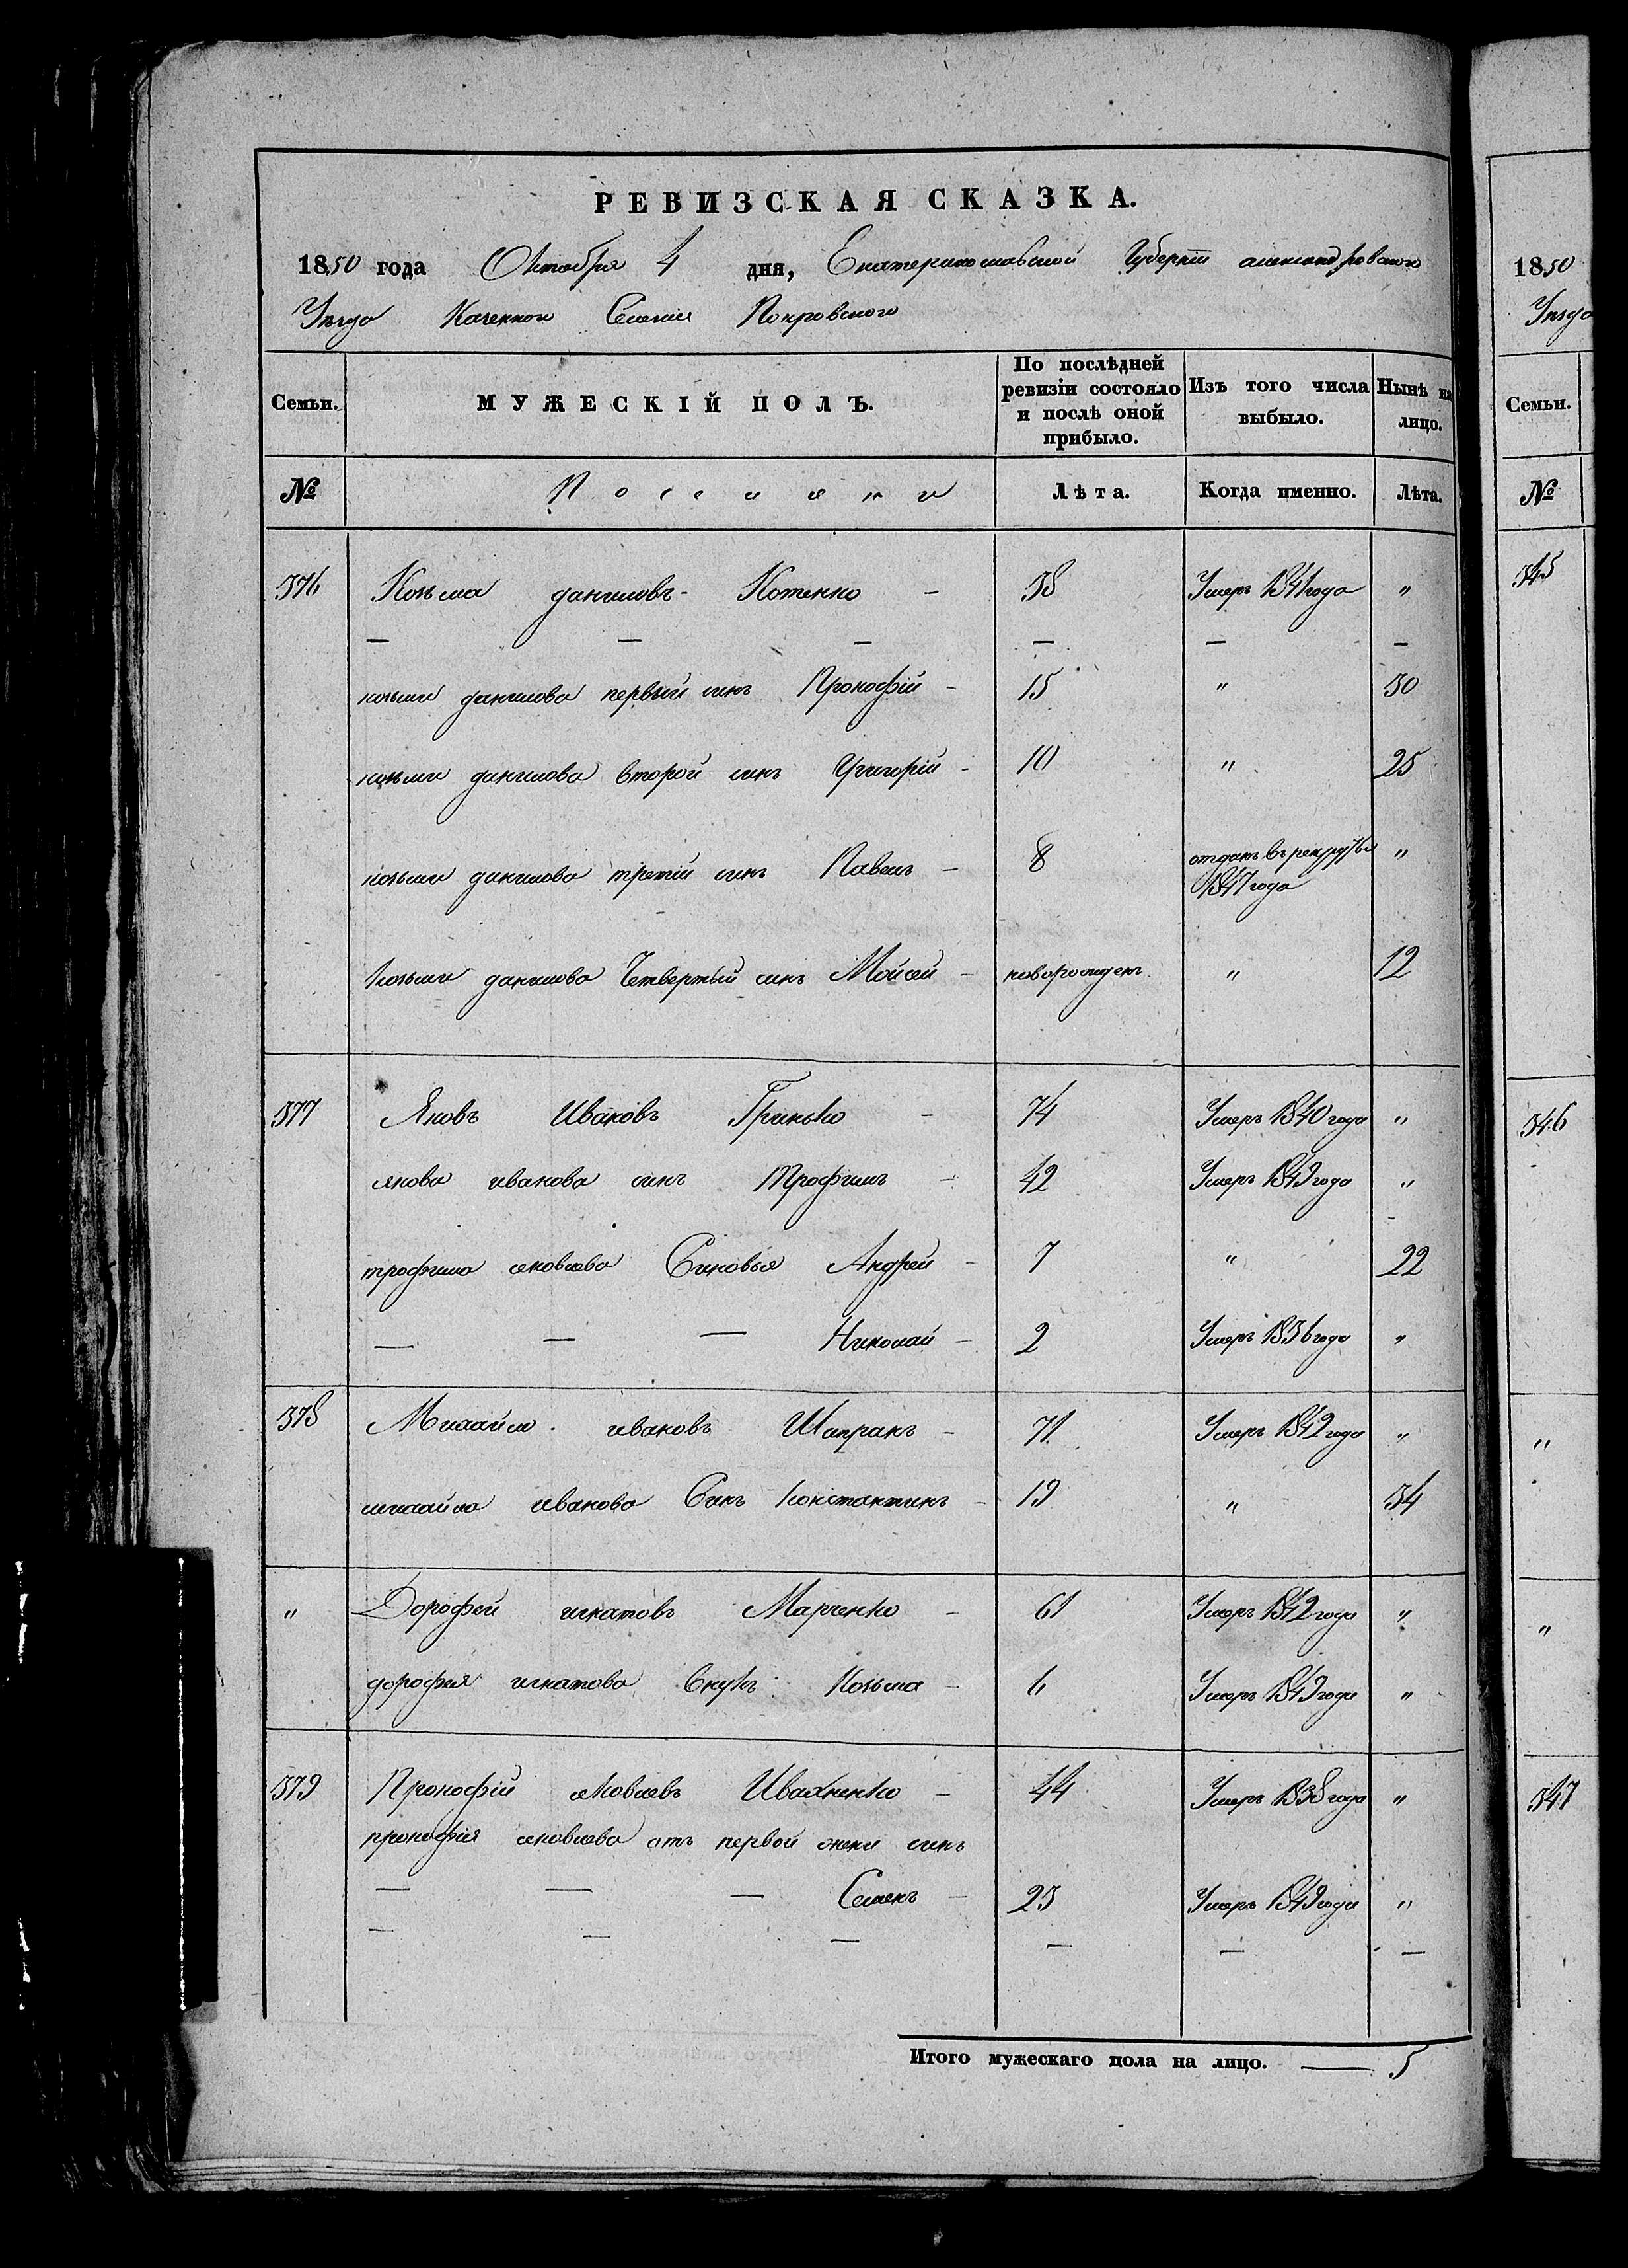 РЕВИЗСКАЯ СКАЗКА.
1850 года Октября 4 дня, Екатеринославской Губернiи александровского
Уѣзда Казенного Селенiя Покровского
Семьи.
МУЖЕСКІЙ ПОЛЪ.
По послѣдней ревизіи состояло и послѣ оной прибыло.
Изъ того числа выбыло.
Нынѣ на лицо.
№ Поселяни Лѣта. Когда именно. Лѣта.
376 Козьма даниловъ Котенко – 38 Умеръ 1841 года "
— — — — — —
козьми данилова первый синъ Прокофій – 15 " 30
козьми данилова второй синъ Григорій – 10 " 25
козьми данилова третій синъ Павелъ – 8 отданъ въ рекруты "
1847 года
Козьми данилова Четвертый синъ Мойсей – новорожденъ " 12
377 Яковъ Ивановъ Гринько – 74 Умеръ 1840 года "
якова иванова синъ Трофимъ – 42 Умеръ 1849 года "
трофима яковлева Синовья Андрей – 7 " 22
— — — Николай – 2 Умеръ 1836 года "
378 Михайло ивановъ Шапранъ – 71 Умеръ 1842 года "
михайла иванова Синъ Константинъ – 19 " 34
" Дорофей игнатовъ Марченко – 61 Умеръ 1842 года "
дорофея игнатова Внукъ Козьма – 6 Умеръ 1849 года "
379 Прокофій яковлевъ Ивахненко – 44 Умеръ 1838 года "
прокофія яковлева отъ первой жени синъ
— — — Семенъ – 23 Умеръ 1849 года "
— — — — — —
Итого мужескаго пола на лицо. — 5
1850
Уѣзда
Семьи.
№
345
346
"
"
347